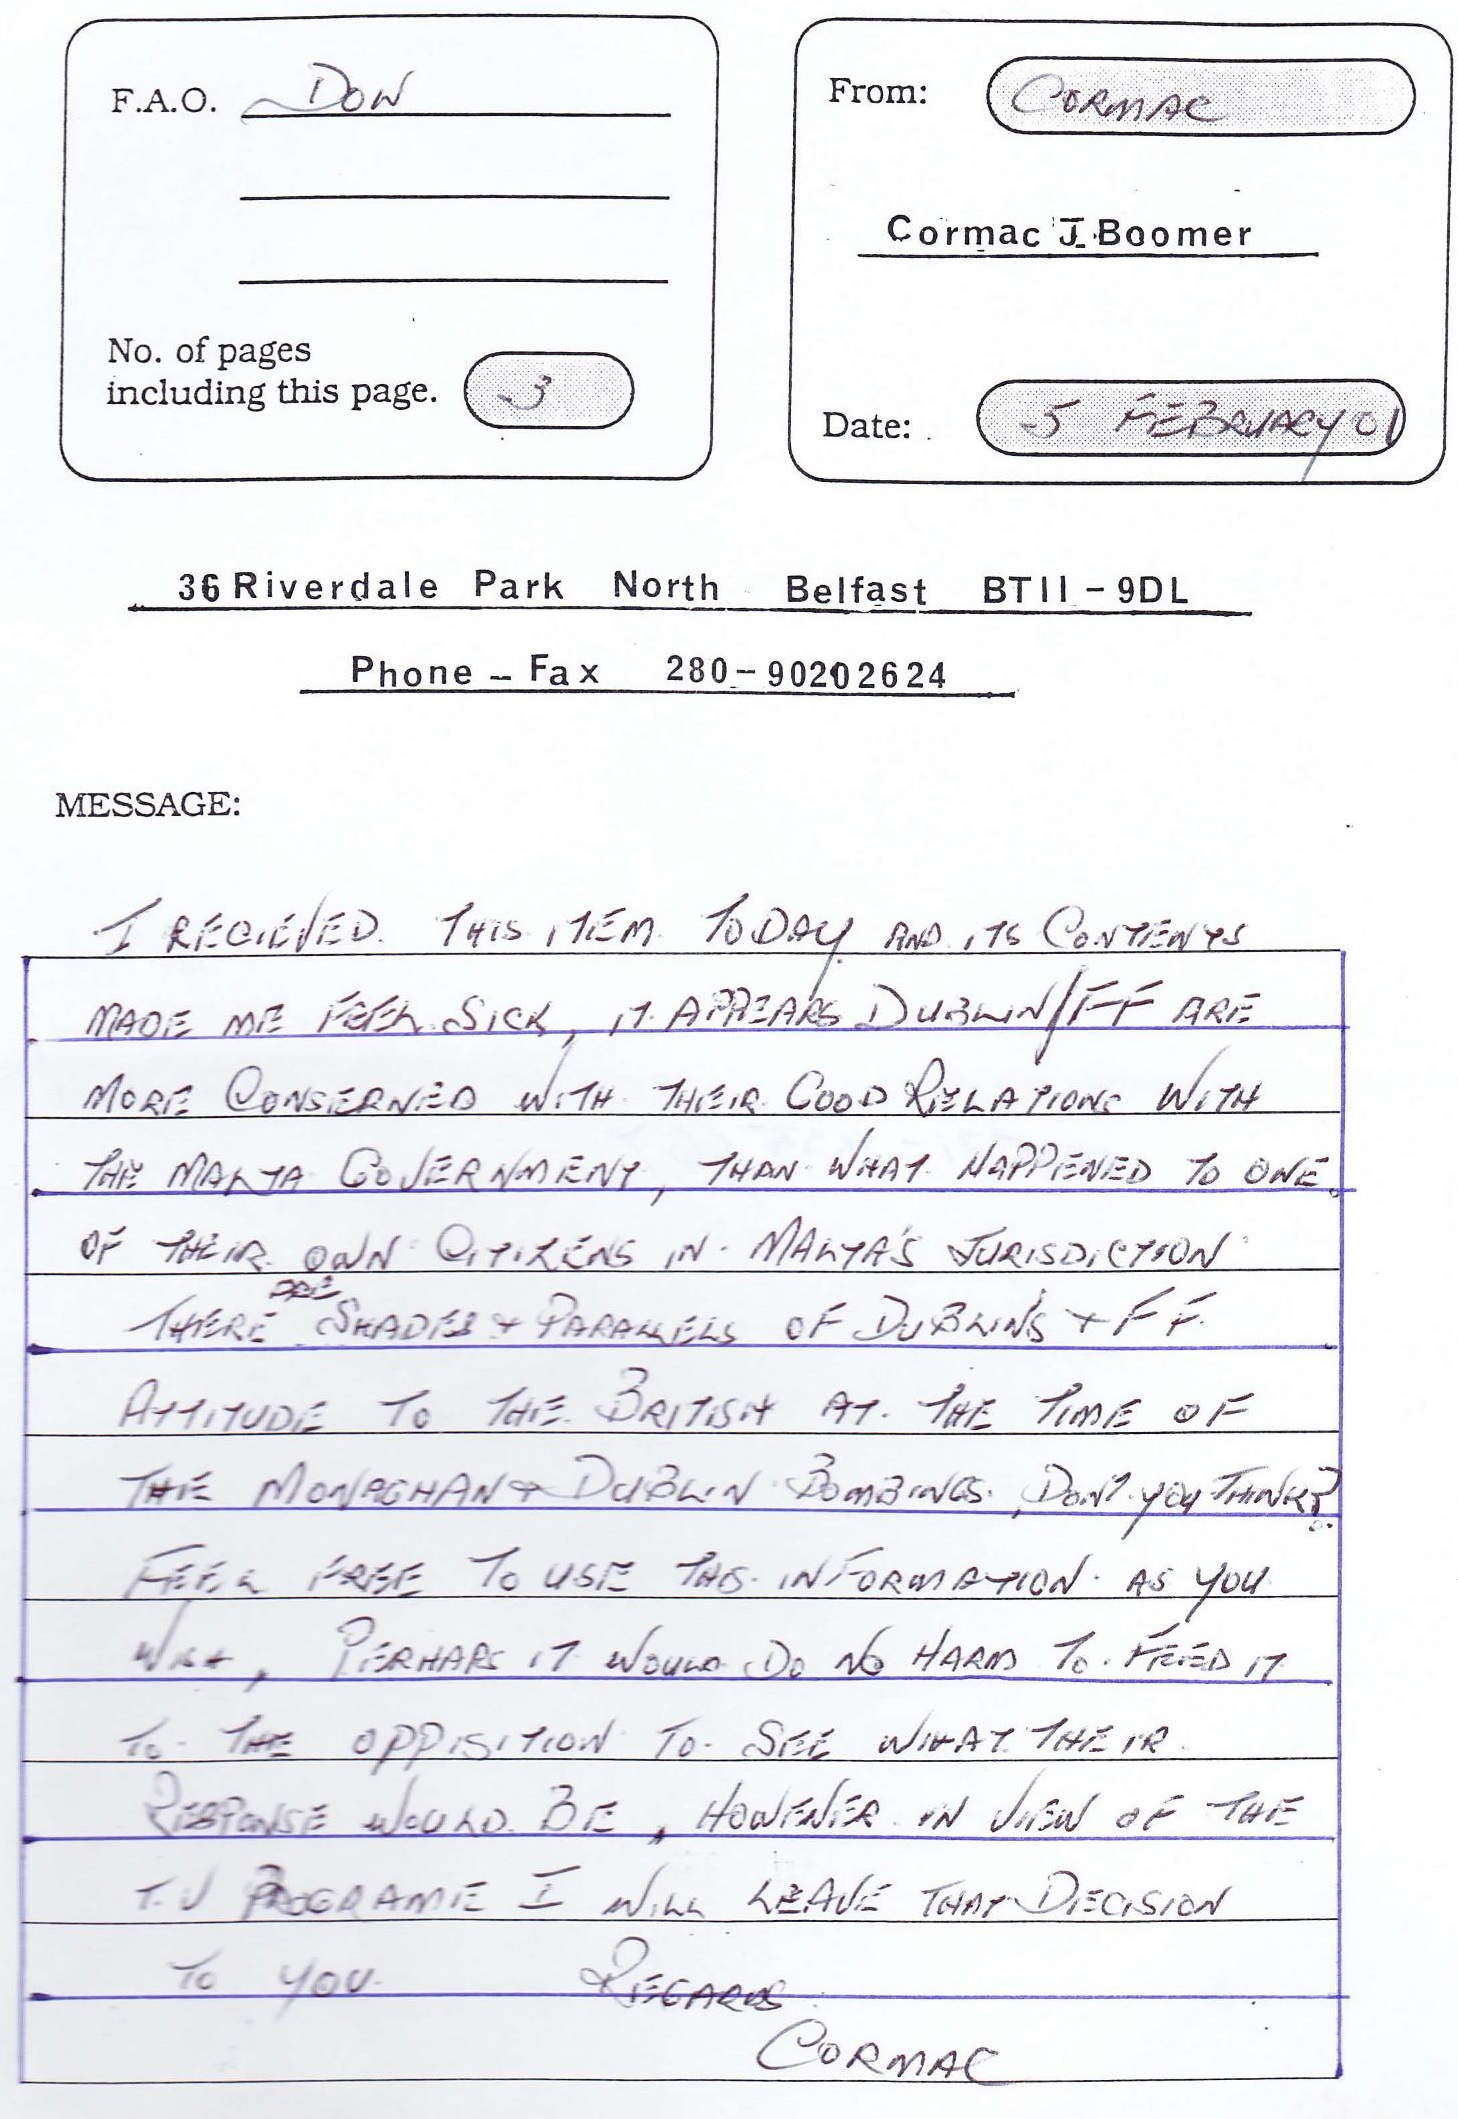 F.A.O. DON
From: CORMAC
Cormac J. Boomer
No. of pages
including this page. 3
Date: 5 FEBRUARY 01
36 Riverdale Park North Belfast BT11-9DL
Phone - Fax 280-90202624
MESSAGE:
I RECIEVED THIS ITEM TODAY AND ITS CONTENTS
MADE ME FEEL SICK, IT APPEARS DUBLIN/FF ARE
MORE CONSERNED WITH THEIR GOOD RELATIONS WITH
THE MALTA GOVERNMENT, THAN WHAT HAPPENED TO ONE
OF THEIR OWN CITIZENS IN MALTA'S JURISDICTION
THERE ARE SHADES + PARALLELS OF DUBLIN'S + FF
ATTITUDE TO THE BRITISH AT THE TIME OF
THE MONAGHAN + DUBLIN BOMBINGS, DON'T YOU THINK?
FEEL FREE TO USE THIS INFORMATION AS YOU
WISH, PERHAPS IT WOULD DO NO HARM TO FEED IT
TO THE OPPISITION TO SEE WHAT THEIR
RESPONSE WOULD BE, HOWEVER IN VIEW OF THE
T.V PROGRAME I WILL LEAVE THAT DECISION
TO YOU REGARDS
CORMAC